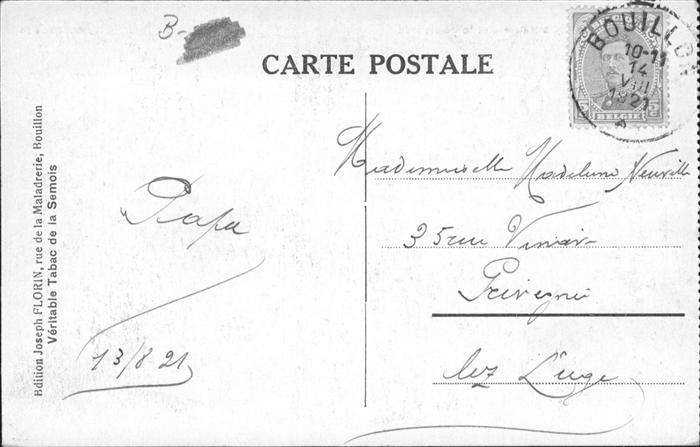 B-
BOUILLON
10-11
14
VIII
1921
CARTE POSTALE
Edition Joseph FLORIN, rue de la Maladrerie, Bouillon
Véritable Tabac de la Semois
Papa
13/8 21
Mademoiselle Madeleine Neuville
35 rue
lez Liège